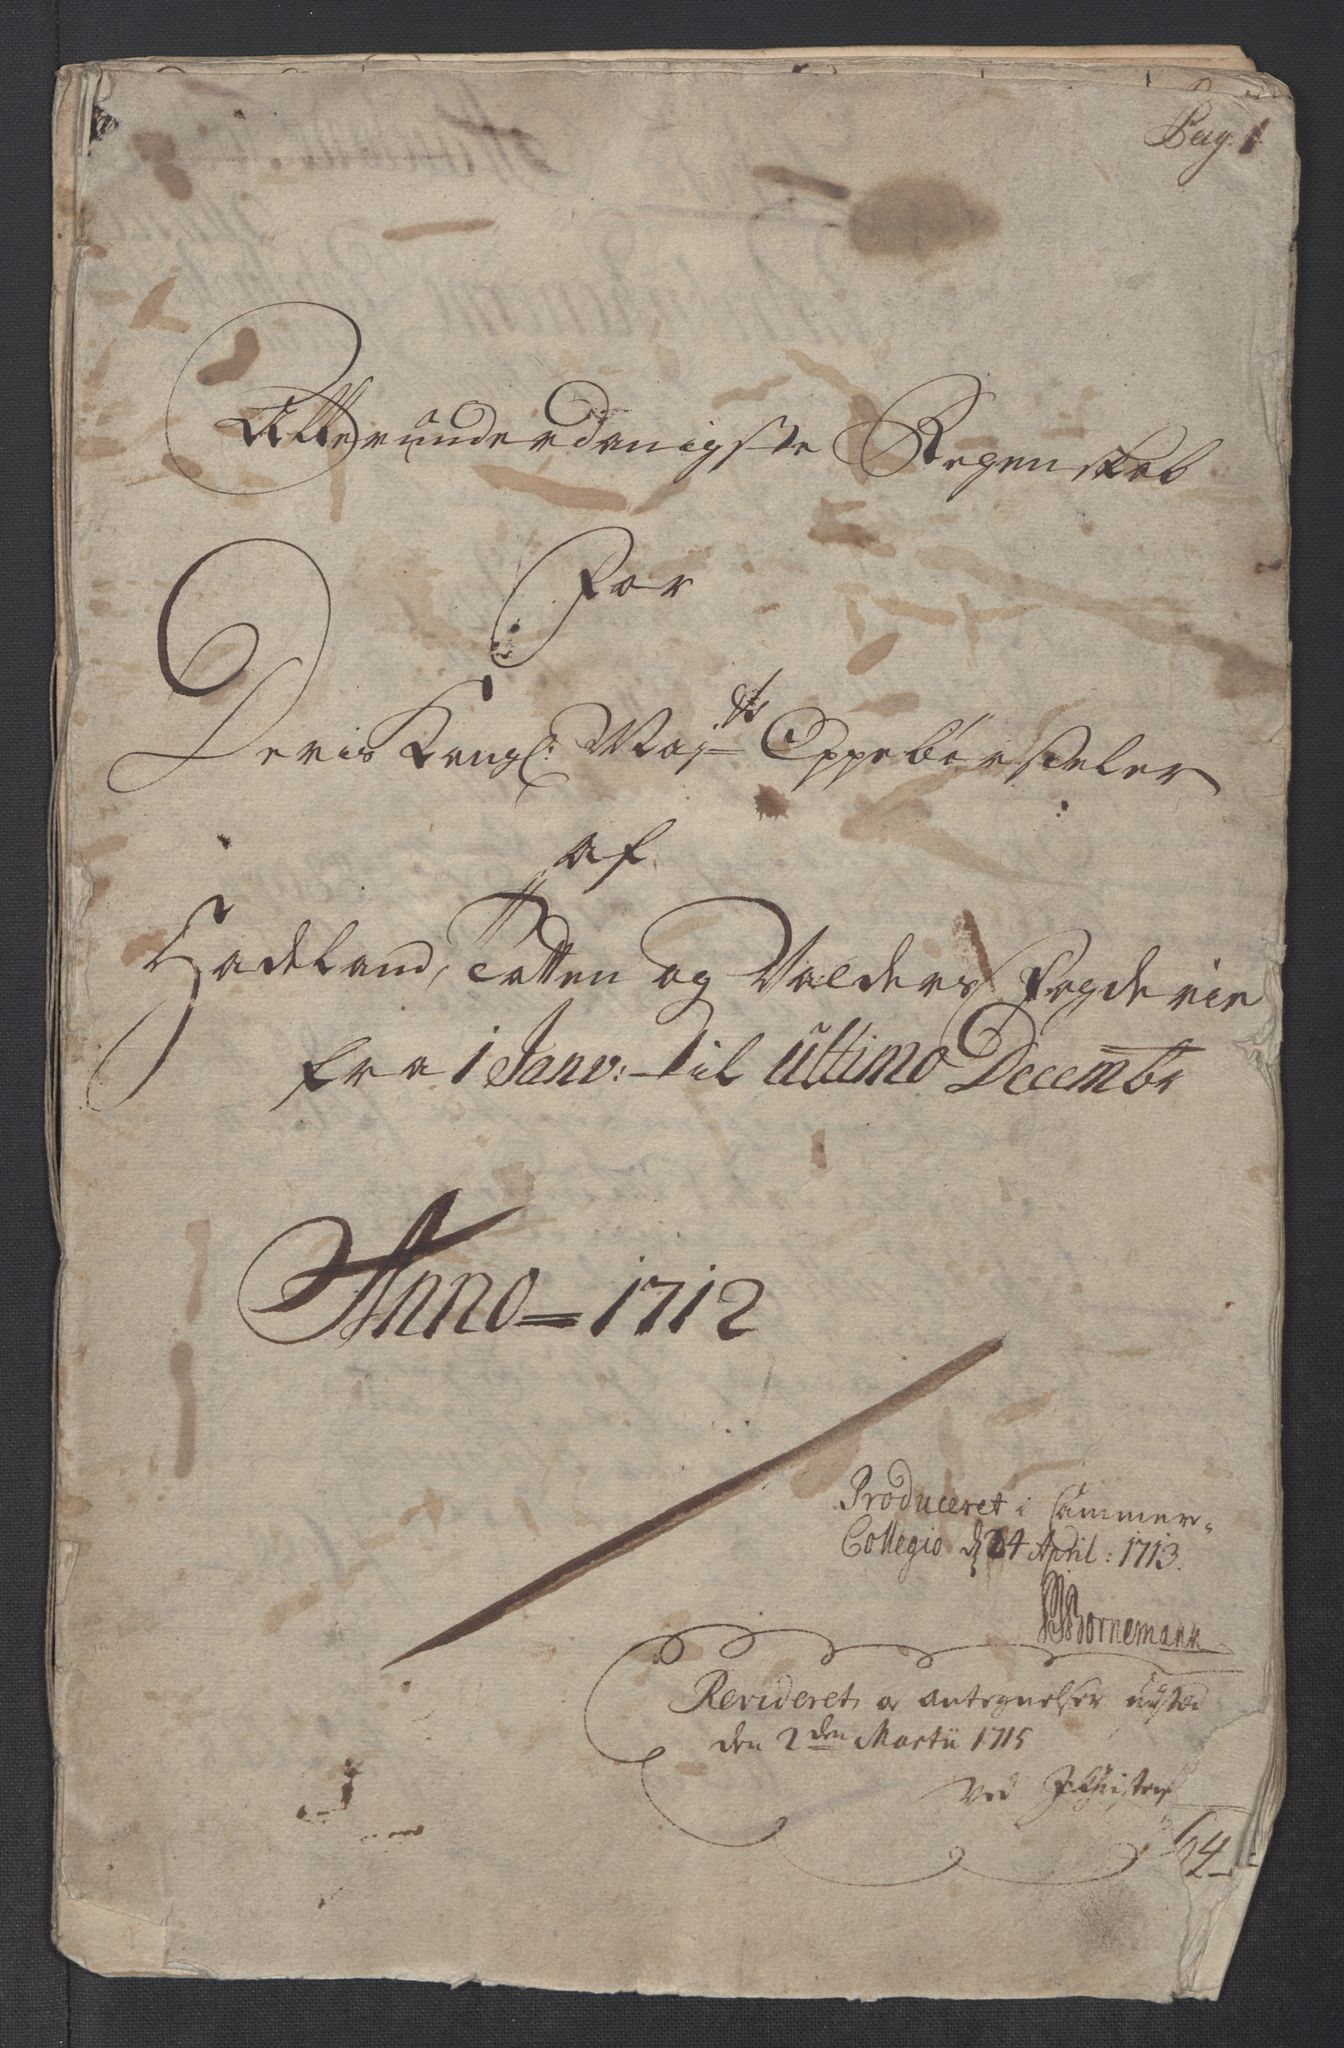 Pag. 1.
Allerunderdanigste Regenskab
For
Deris Kongl: Maj:ts Oppebørsteler
af
Hadeland, Totten og Valders Fogderie
fra 1 Janv: til ultimo Decembr
Anno = 1712
Produceret i Cammer-
Collegio d 24 April: 1713.
Bornemann
Revideret, og antegnelser
den 2den Martii 1715
Ved